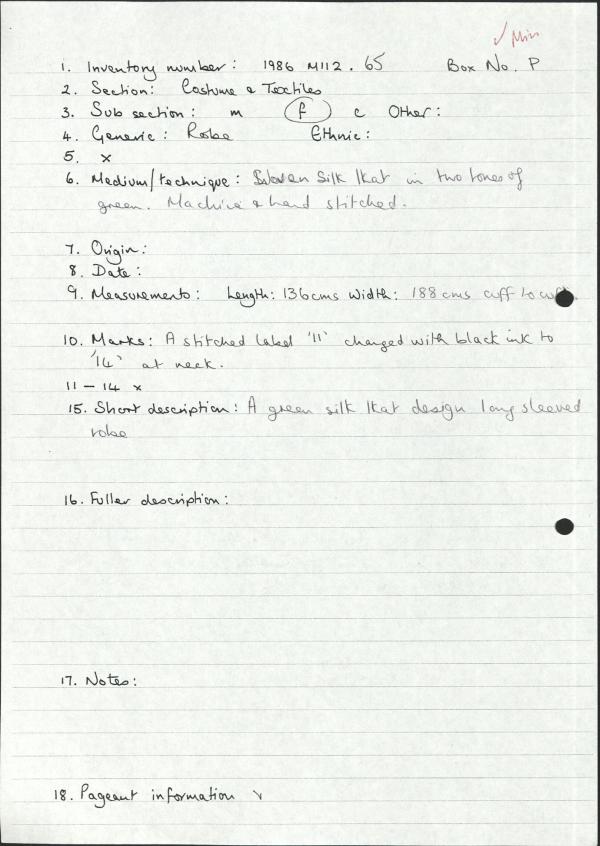 ✓ Min
1. Inventory number: 1986 M112.65 Box No. P
2. Section: Costume & Textiles
3. Sub section: m f c Other:
4. Generic: Robe Ethnic:
5. x
6. Medium/technique: Woven Silk Ikat in two tones of
green. Machine & hand stitched.
7. Origin:
8. Date:
9. Measurements: Length: 136cms Width: 188cms cuff to cuff.
10. Marks: A stitched label '11' changed with black ink to
'14' at neck.
11 - 14 x
15. Short description: A green silk Ikat design long sleeved
robe
16. Fuller description:
17. Notes:
18. Pageant information